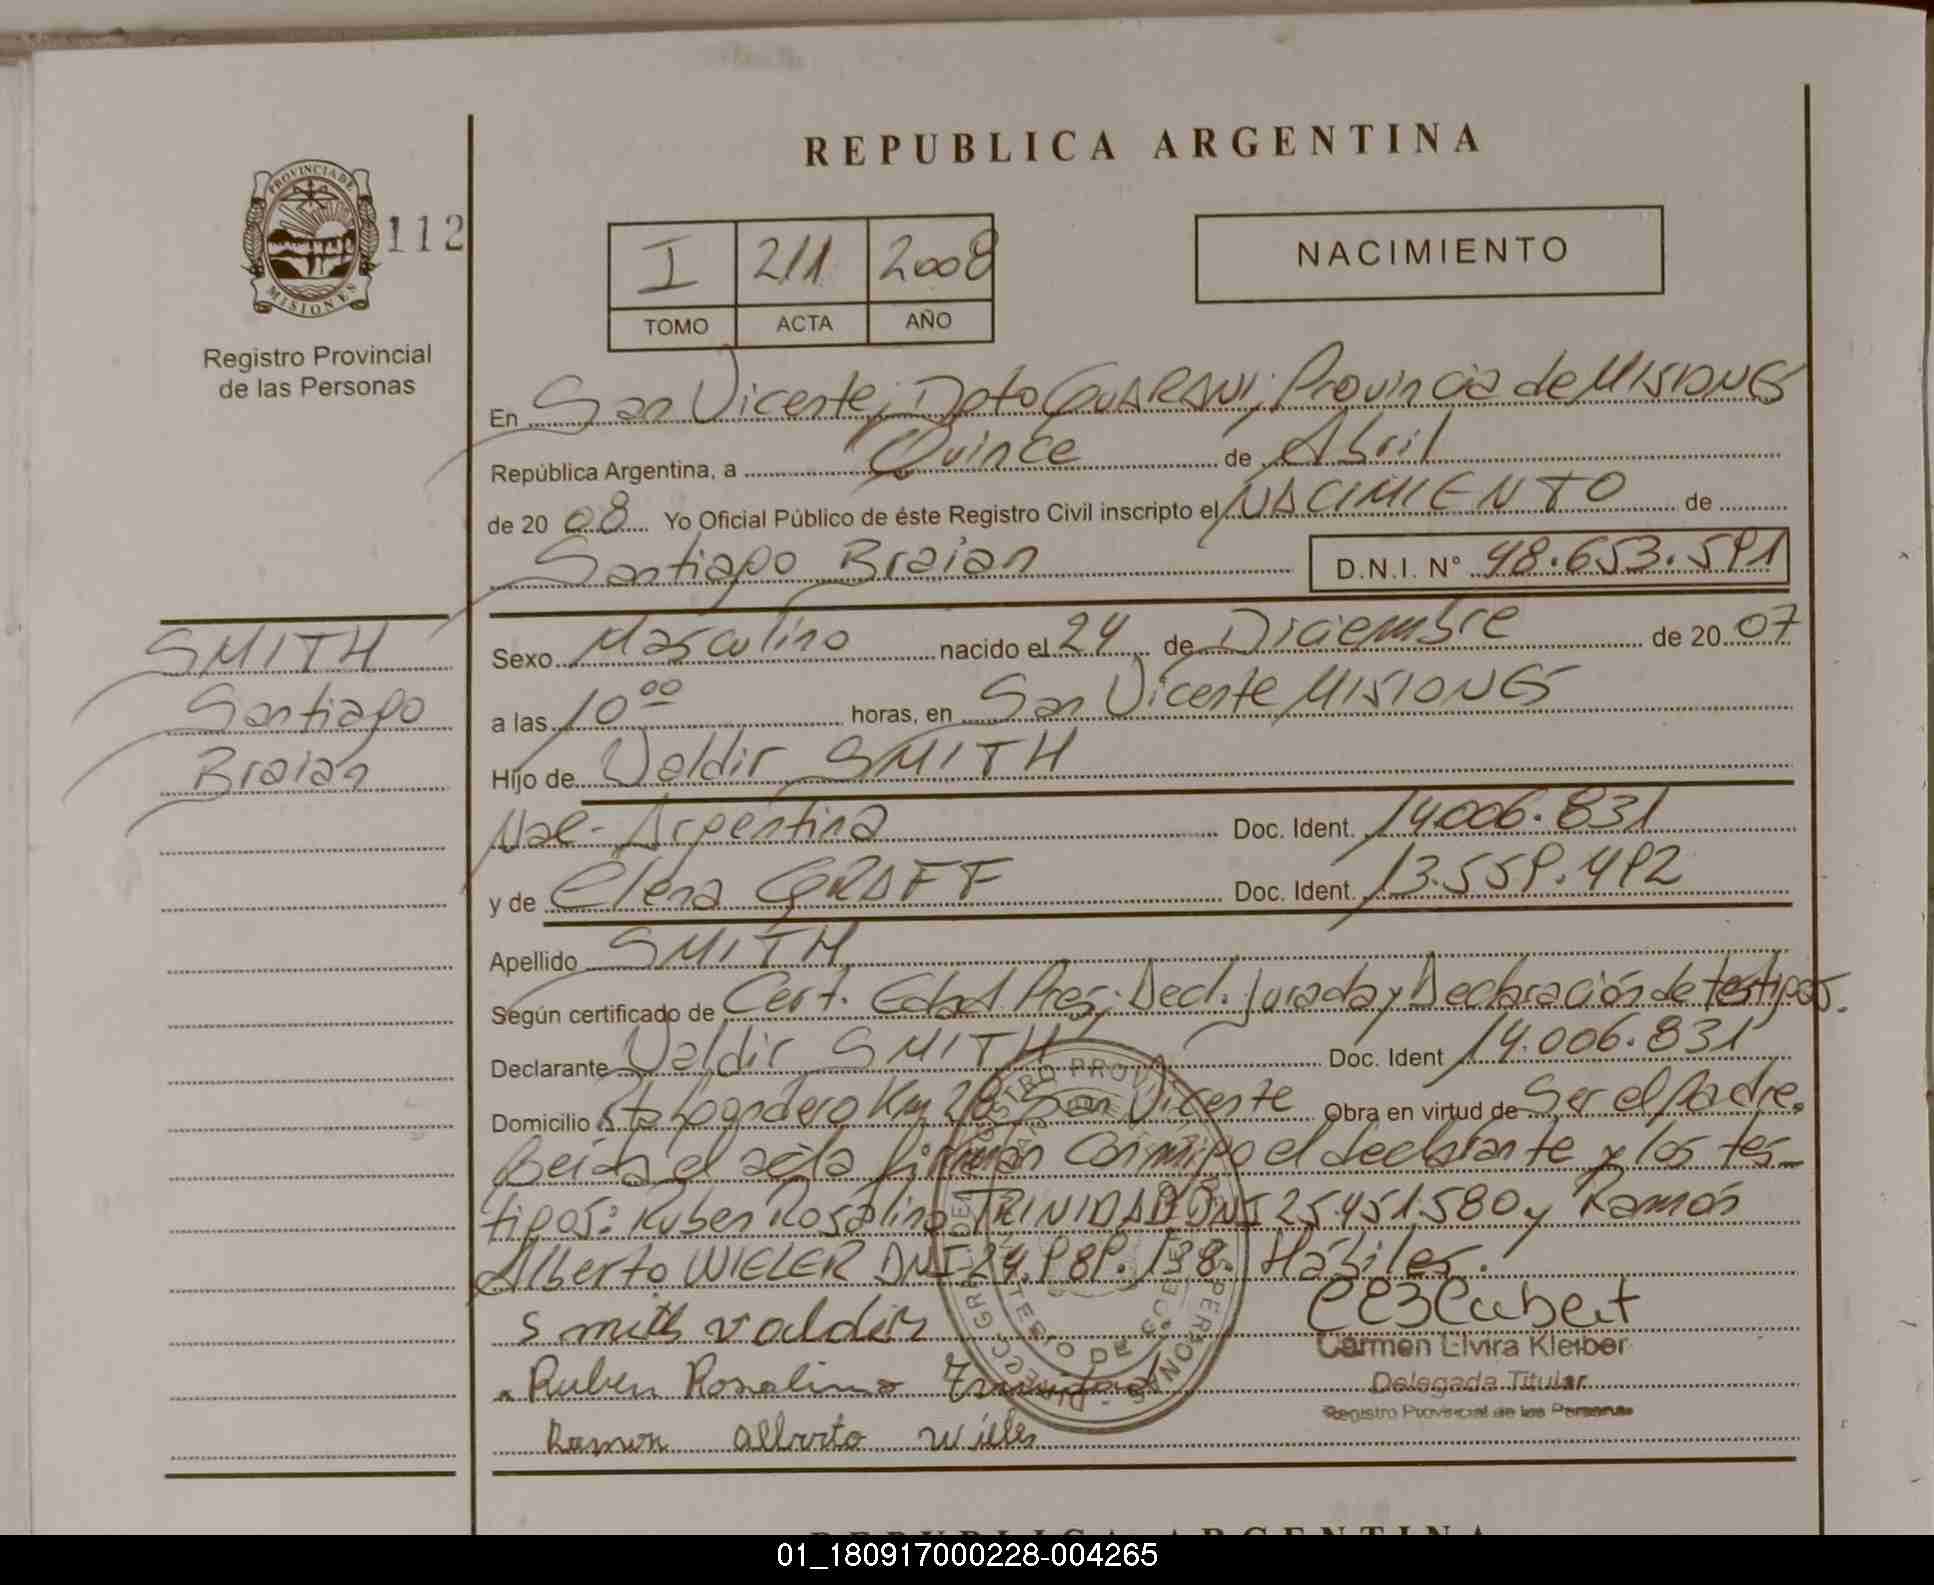 REPUBLICA ARGENTINA
PROVINCIA DE
MISIONES
112
Registro Provincial
de las Personas
I 211 2008
TOMO ACTA AÑO
NACIMIENTO
En San Vicente, Dpto GUARANI, Provincia de MISIONES
República Argentina, a Quince de Abril
de 20 08 Yo Oficial Público de éste Registro Civil inscripto el NACIMIENTO de
Santiago Braian D.N.I. Nº 48.653.591
SMITH
Santiago
Braian
Sexo Masculino nacido el 24 de Diciembre de 20 07
a las 10 00 horas, en San Vicente MISIONES
Hijo de Valdir SMITH
Nac- Argentina Doc. Ident. 14.006.831
y de Elena GRAFF Doc. Ident. 13.559.492
Apellido SMITH
Según certificado de Cert. Edad Pres. Decl. Jurada y Declaración de testigos.
Declarante Valdir SMITH Doc. Ident 14.006.831
Domicilio Km 28 San Vicente Obra en virtud de Ser el padre.
Leida el acta firman conmigo el declarante y los tes-
tigos: Ruben Rosalino TRINIDAD DNI 25.451.580 y Ramón
Alberto WIELER DNI 24.989.138. Hábiles.
Smith valdir
Ruben Rosalino Trinidad
Ramon alberto
Carmen Elvira Kleiber
Delegada Titular
Registro Provincial de las Personas
REPUBLICA ARGENTINA
01_180917000228-004265